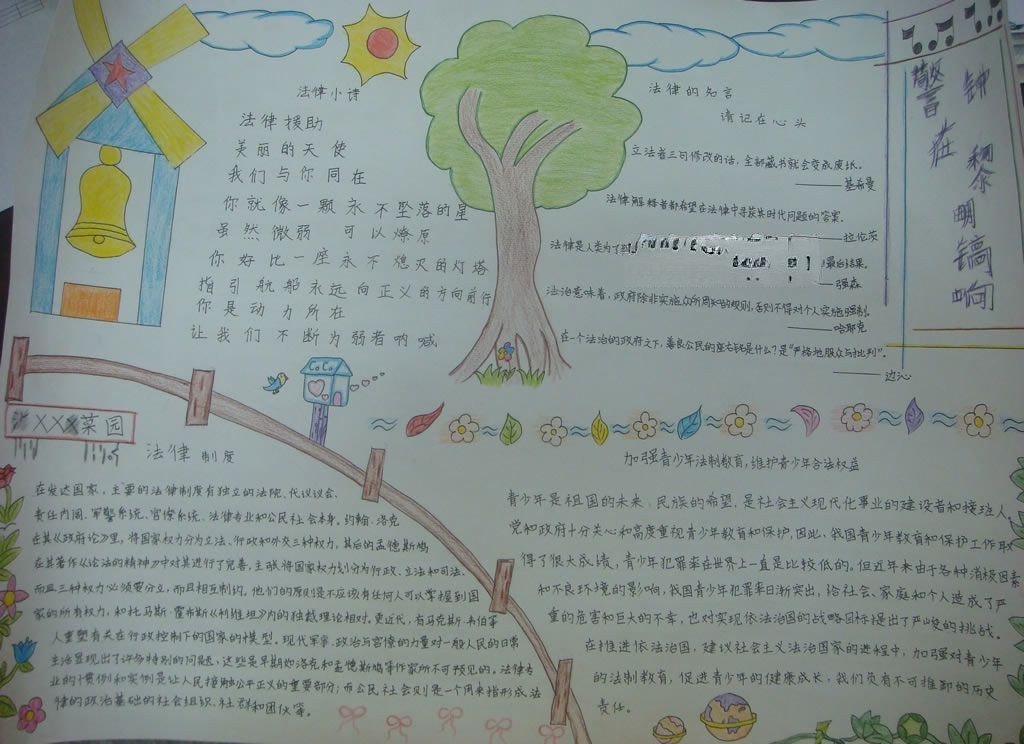 法律小诗
法律援助
美丽的天使
我们与你同在
你就像一颗永不坠落的星
虽然微弱 可以燎原
你好比一座永不熄灭的灯塔
指引航船永远向正义的方向前行
你是动力所在
让我们不断为弱者呐喊
法律的知言
请记在心头
立法者三句修改的话,全部藏书就会变成废纸。
——基希曼
法律解释者都希望在法律中寻获其时代问题的答案。
——拉伦茨
法律是人类为了
最后结果。
——强森
法治意味着,政府除非实施众所周知的规则,否则不得对个人实施强制。
——哈耶克
在一个法治的政府之下,善良公民的座右铭是什么?是“严格地服从与批判”。
——边沁
警 钟
在 黎
明
鸣
响
CoCo
XXX菜园
法律制度
在发达国家,主要的法律制度有独立的法院、代议议会、
责任内阁、军警系统、官僚系统、法律专业和公民社会本身。约翰·洛克
在其《政府论》里,将国家权力分为立法、行政和外交三种权力,其后的孟德斯鸠
在其著作《论法的精神》中对其进行了完善,主张将国家权力划分为行政、立法和司法,
而且三种权力必须要分立,而且相互制约。他们的原则是不应该有任何人可以掌握到国
家的所有权力,和托马斯·霍布斯《利维坦》内的独裁理论相对。更近代,有马克斯·韦伯等
人重塑有关在行政控制下的国家的模型。现代军事、政治与官僚的力量对一般人民的日常
生活显现出了许多特别的问题,这些是早期如洛克和孟德斯鸠等作家所不可预见的。法律专
业的惯例和实例是让人民接触公平正义的重要部分;而公民社会则是一个用来指形成法
律的政治基础的社会组织、社群和团伙等。
加强青少年法制教育,维护青少年合法权益
青少年是祖国的未来,民族的希望,是社会主义现代化事业的建设者和接班人。
党和政府十分关心和高度重视青少年教育和保护,因此,我国青少年教育和保护工作取
得了很大成绩,青少年犯罪率在世界上一直是比较低的。但近年来由于各种消极因素
和不良环境的影响,我国青少年犯罪率日渐突出,给社会、家庭和个人造成了严
重的危害和巨大的不幸,也对实现依法治国的战略目标提出了严峻的挑战。
在推进依法治国,建议社会主义法治国家的进程中,加强对青少年
的法制教育,促进青少年的健康成长,我们负有不可推卸的历史
责任。